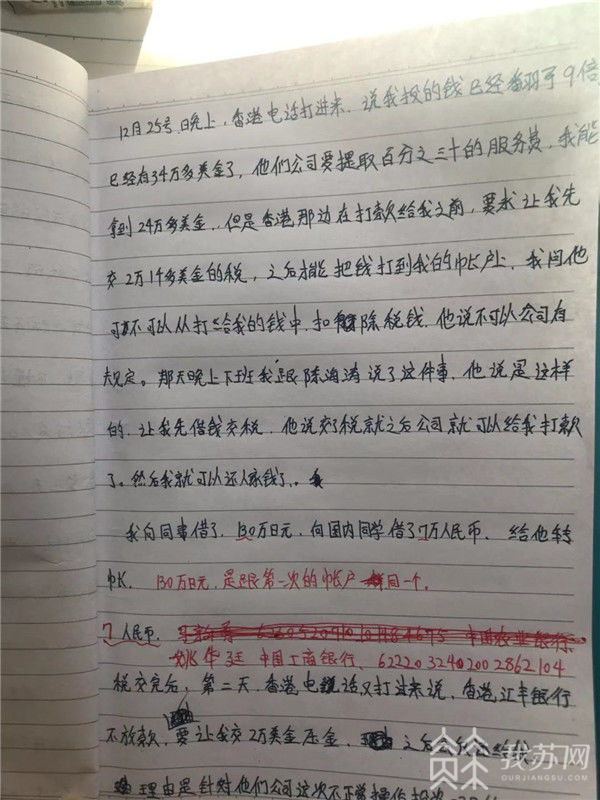 12月25号晚上,香港电话打进来,说我投的钱已经番羽了9倍
已经有34万多美金了,他们公司要提取百分之三十的服务费,我能
拿到24万多美金,但是香港那边在打款给我之前,要求让我先
交2万1千多美金的税,之后才能把钱打到我的帐户上,我问他
可不可以从打给我的钱中,扣除税钱,他说不可以公司有
规定。那天晚上下班我跟陈海涛说了这件事,他说是这样
的,让我先借钱交税,他说交了税就之后公司就可以给我打款
了。然后我就可以还人家钱了。
我向同事借了,130万日元,向国内同学借了7万人民币,给他转
帐,130万日元,是跟第一次的帐户同一个。
7人民币,中国农业银行
姚华廷 中国工商银行、6222032402002862104
税交完后,第二天,香港电话又打进来说,香港汇丰银行
不放款,要让我交2万美金压金,之后
理由是针对他们公司这次不正常操作投资
我苏网
OURJIANGSU.COM